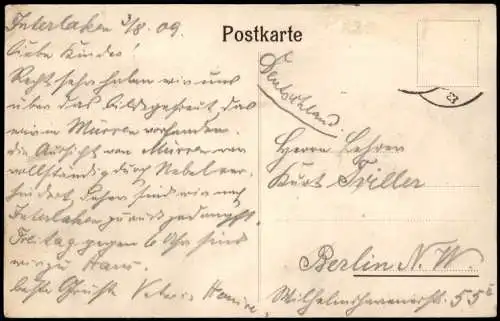 Interlaken 3/8. 09.
Postkarte
Liebe Kinder!
Recht sehr haben wir uns
über das Bild gefreut, das
wir in Mürren vorfanden.
Die Aussicht von Mürren war
vollständig durch Nebel ver-
hindert. Daher sind wir nach
Interlaken zurück gedampft.
Freitag gegen 6 Uhr sind
wir zu Haus.
beste Grüsse Vater
Deutschland.
Herrn Lehrer
Kurt Triller
Berlin N. W.
Wilhelmshavenerstr. 55